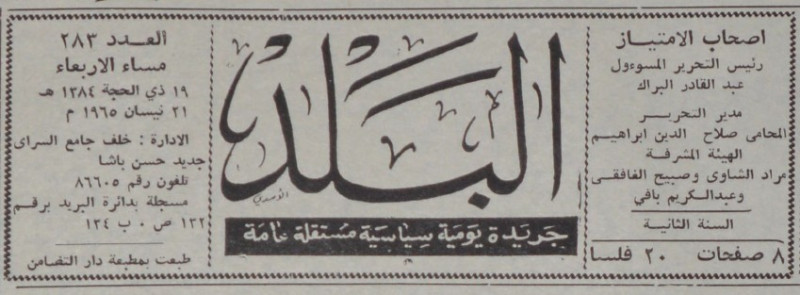 اصحاب الامتياز
رئيس التحرير المسوءول
عبد القادر البراك
مدير التحرير
المحامى صلاح الدين ابراهيم
الهيئة المشرفة
مراد الشاوى وصبيح الغافقى
وعبدالكريم بافي
السنة الثانية
٨ صفحات ٢٠ فلسا
البلد
جريدة يومية سياسية مستقلة عامة
العدد ٢٨٣
مساء الاربعاء
١٩ ذي الحجة ١٣٨٤ هـ
٢١ نيسان ١٩٦٥ م
الادارة : خلف جامع السراى
جديد حسن باشا
تلفون رقم ٨٦٦٠٥
مسجلة بدائرة البريد برقم
١٣٢ ص ٠ ب ١٣٤
طبعت بمطبعة دار التضامن